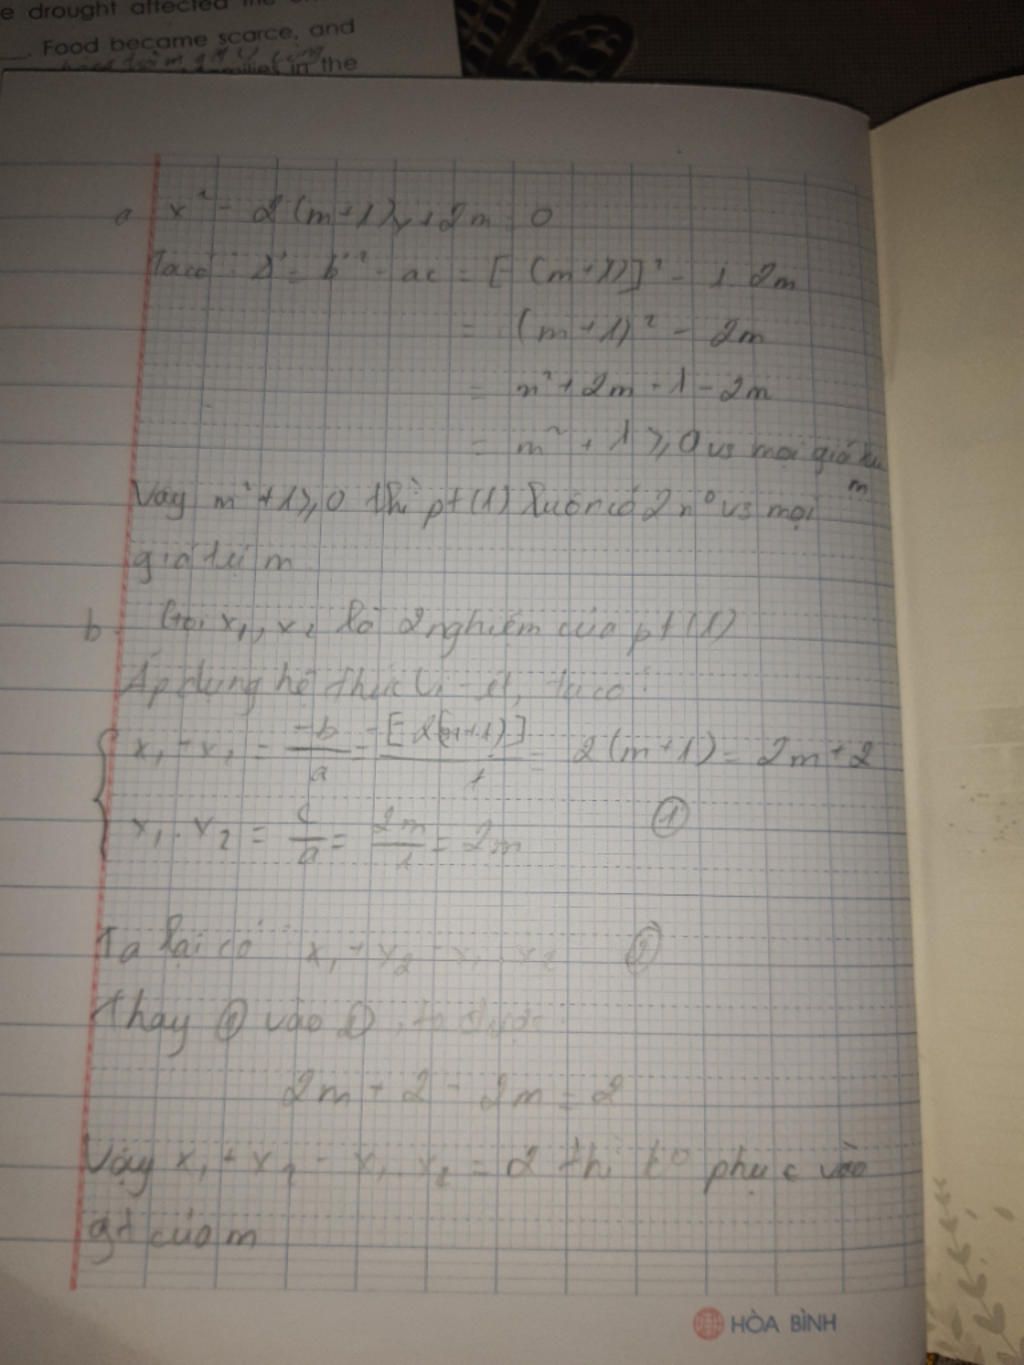 e drought affected the
Food became scarce, and
in the
a x² - 2(m+1)x + 2m = 0
Ta có: Δ' = b'² - ac = [-(m+1)]² - 1.2m
= (m+1)² - 2m
= m² + 2m + 1 - 2m
= m² + 1 ⩾ 0 vs mọi giá trị
m
Vậy m² + 1 ⩾ 0 thì pt (1) luôn có 2 n⁰ vs mọi
giá trị m
b. Gọi x₁, x₂ là 2 nghiệm của pt (1)
Áp dụng hệ thức Vi-ét, ta có:
x₁ + x₂ = -b/a = -[-2(m+1)]/1 = 2(m+1) = 2m + 2
x₁ . x₂ = c/a = 2m/1 = 2m ①
Ta lại có x₁ + x₂ - x₁ . x₂ ②
Thay ① vào ②, ta được
2m + 2 - 2m = 2
Vậy x₁ + x₂ - x₁ . x₂ = 2 thì k⁰ phục vào
gt của m
HÒA BÌNH